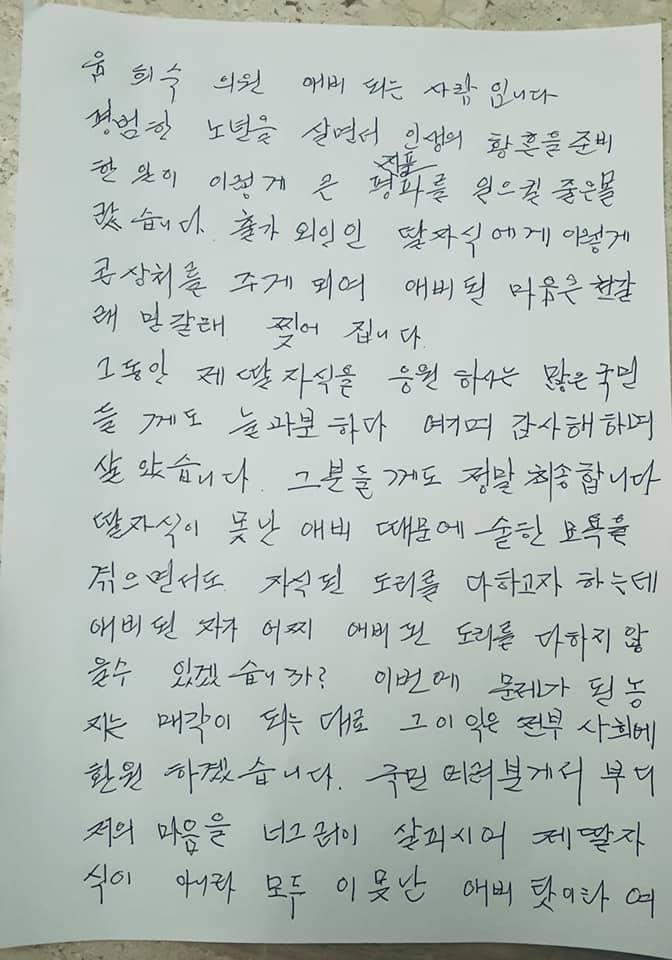 윤 희숙 의원 애비 되는 사람 입니다
평범한 노년을 살면서 인생의 황혼을 준비
한 일이 이렇게 큰 평파를 일으킬 줄은몰
지풍
랐습니다. 출가 외인인 딸자식에게 이렇게
큰상처를 주게 되여 애비된 마음은 천갈
래 만갈래 찢어 집니다.
그동안 제 딸자식을 응원 하시는 많은국민
들 께도 늘과분하다 여기며 감사해하며
살았습니다. 그분들께도 정말 죄송합니다
딸자식이 못난 애비 때문에 숱한 모욕을
겪으면서도 자식된 도리를 다하고자 하는데
애비된 자가 어찌 애비된 도리를 다하지 않
을수 있겠습니까? 이번에 문제가 된농
지는 매각이 되는 대로 그이익은 전부 사회에
환원 하겠습니다. 국민 여러분께서 부디
저의 마음을 너그러이 살피시어 제딸자
식이 아니라 모두 이못난 애비 탓이라 여